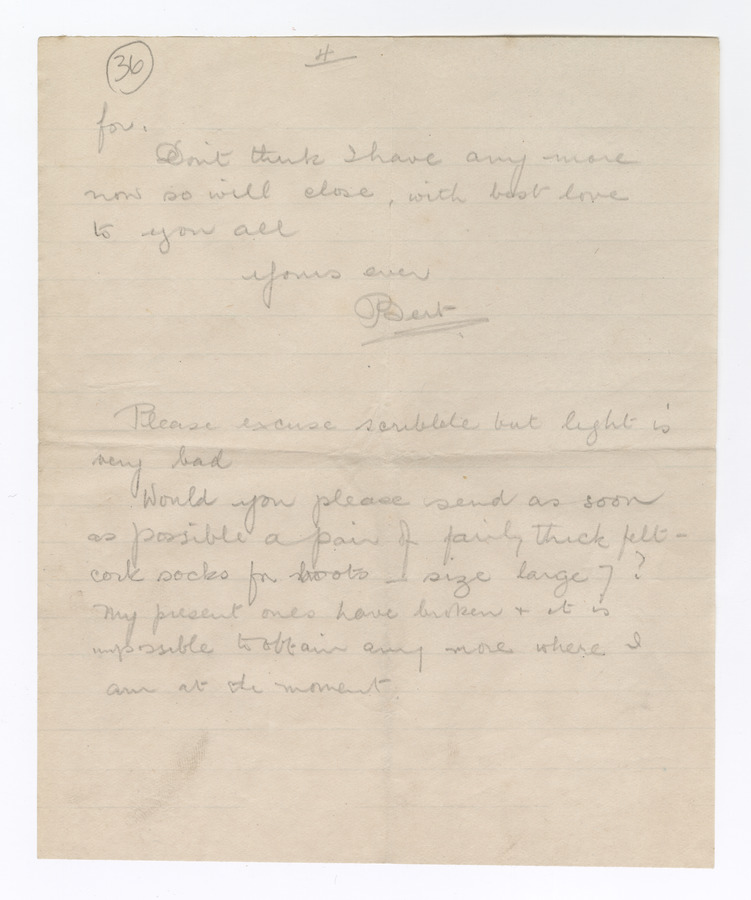 36
4
for.
Don't think I have any more
now so will close, with best love
to you all
Yours ever
Bert
Please excuse scribble but light is
very bad
Would you please send as soon
as possible a pair of fairly thick felt-
cork socks for boots - size large 7?
My present ones have broken + it is
impossible to obtain any more where I
am at the moment.